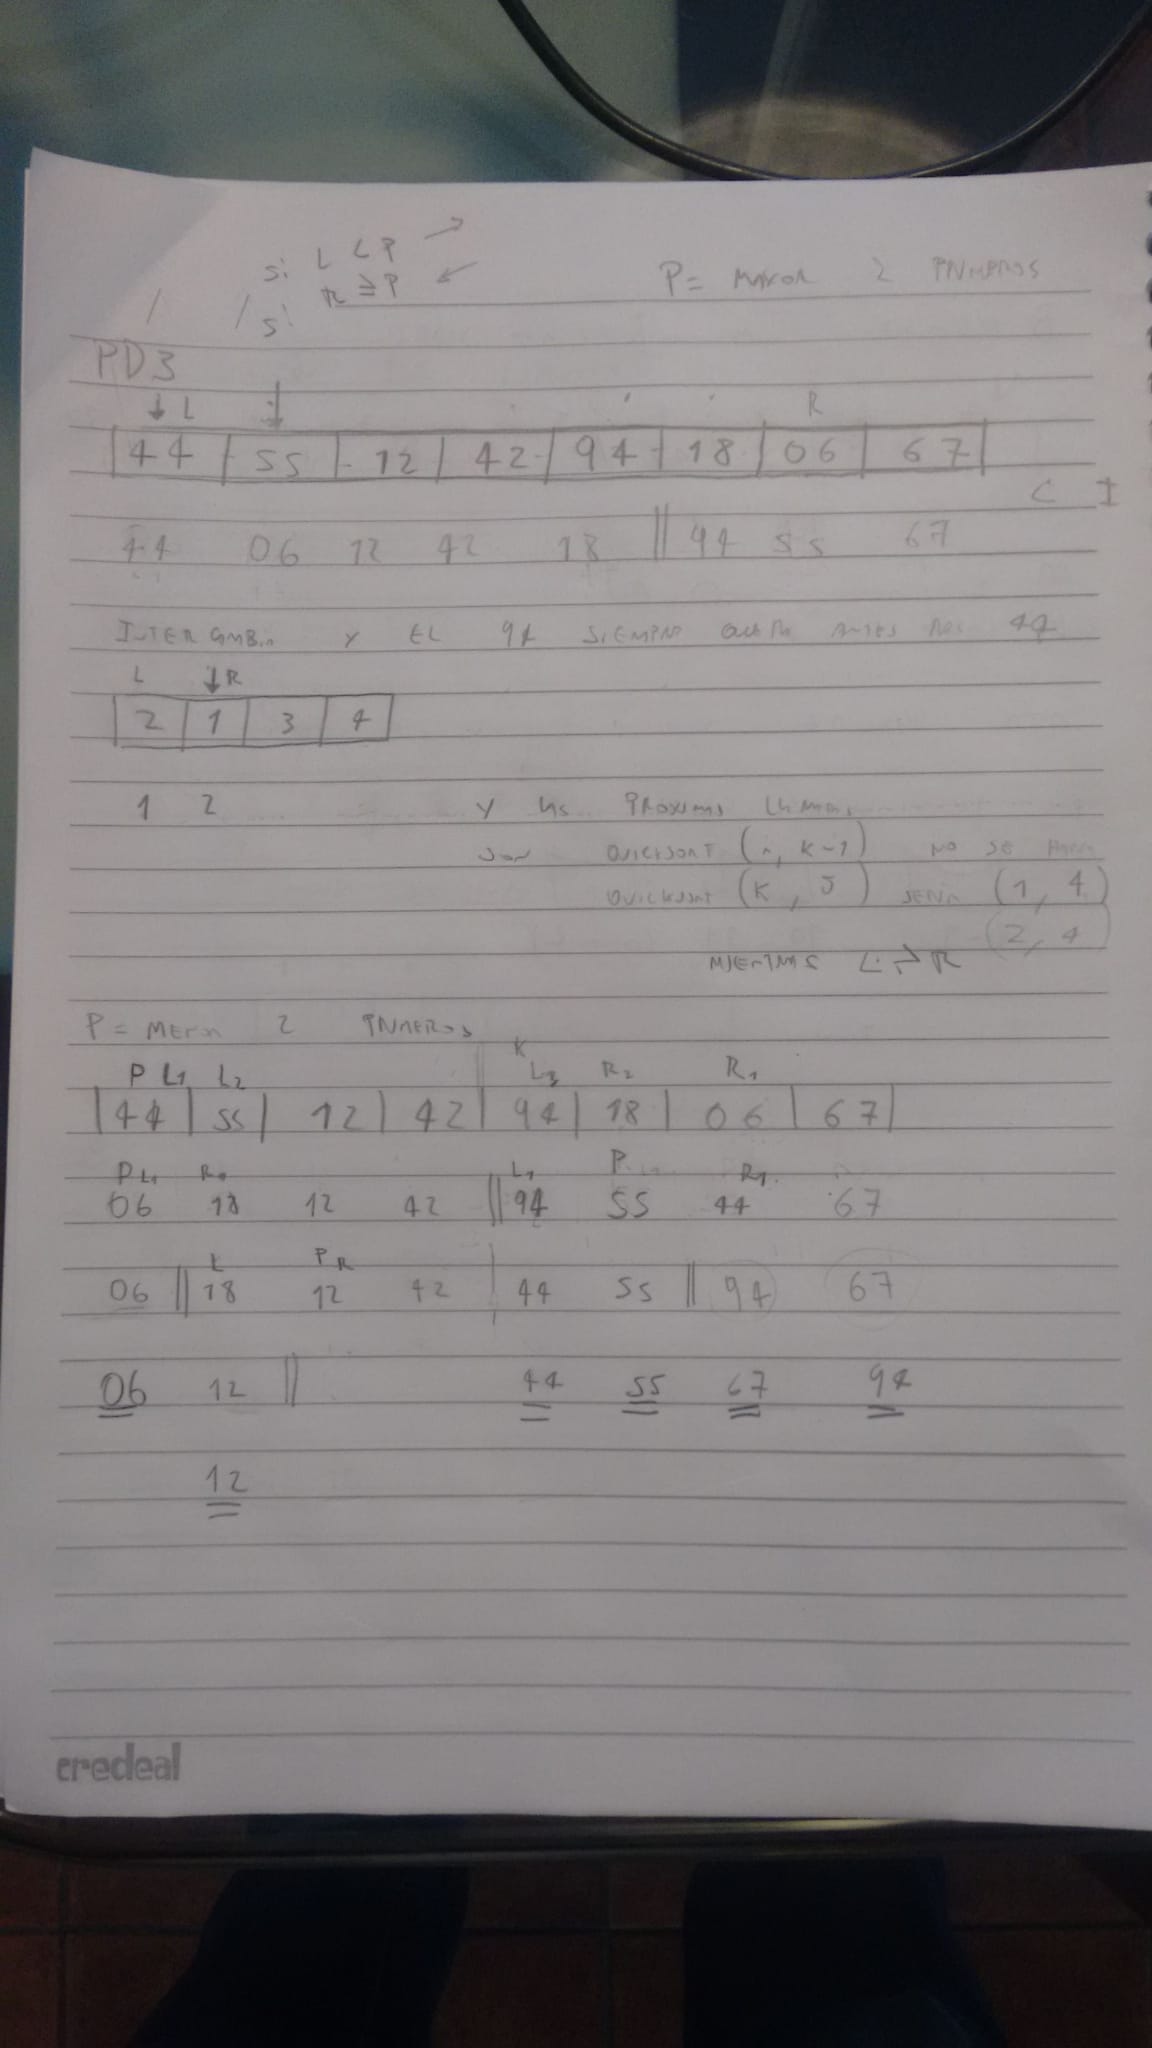 si L < P →
si R ≥ P ←
P = MAYOR 2 PRIMEROS
PD3
↓ L ↓ R
44 55 12 42 94 18 06 67
< I
44 06 12 42 18 || 94 55 67
Y EL 94 SIEMPRE ANTES 44
L ↓ R
2 1 3 4
1 2 Y LAS PROXIMAS
SON QUICKSORT (i, K-1) NO SE
QUICKSORT (K, J) SERIA (1, 4)
(2, 4)
MIENTRAS L R
P = 2 PRIMEROS
K
P L1 L2 L3 R2 R1
44 55 12 42 94 18 06 67
P L1 L1 P R1
06 18 12 42 || 94 55 44 67
L P R
06 || 18 12 42 44 55 || 94 67
06 12 || 44 55 67 94
12
credeal